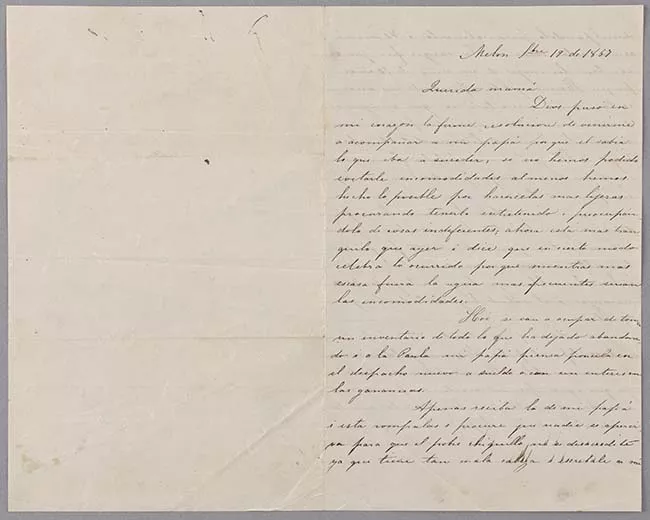 Melon Sbre 19 de 1867
Querida mamá
Dios puso en
mi corazon la firme resolucion de venirme
a acompañar a mi papá porque el sabia
lo que iba a suceder; si no hemos podido
evitarle incomodidades al menos hemos
hecho lo posible por hacerselas mas lijeras
procurando tenerlo entretenido i preocupan
dolo de cosas indiferentes; ahora está mas tran
quilo que ayer i dice que en cierto modo
celebra lo ocurrido porque mientras mas
escasa fuera la agua mas frecuentes serian
las incomodidades.
Hoi se van a ocupar de tom
un inventario de todo lo que ha dejado abando
do i a la Paula mi papá piensa ponerla en
el despacho nuevo a sueldo o con un interes en
las ganancias.
Apenas reciba la de mi papá
i esta rompalas i procure que nadie se aperci
va para que el pobre chiquillo no se desacredite
ya que tiene tan mala cabeza i escribale a mi